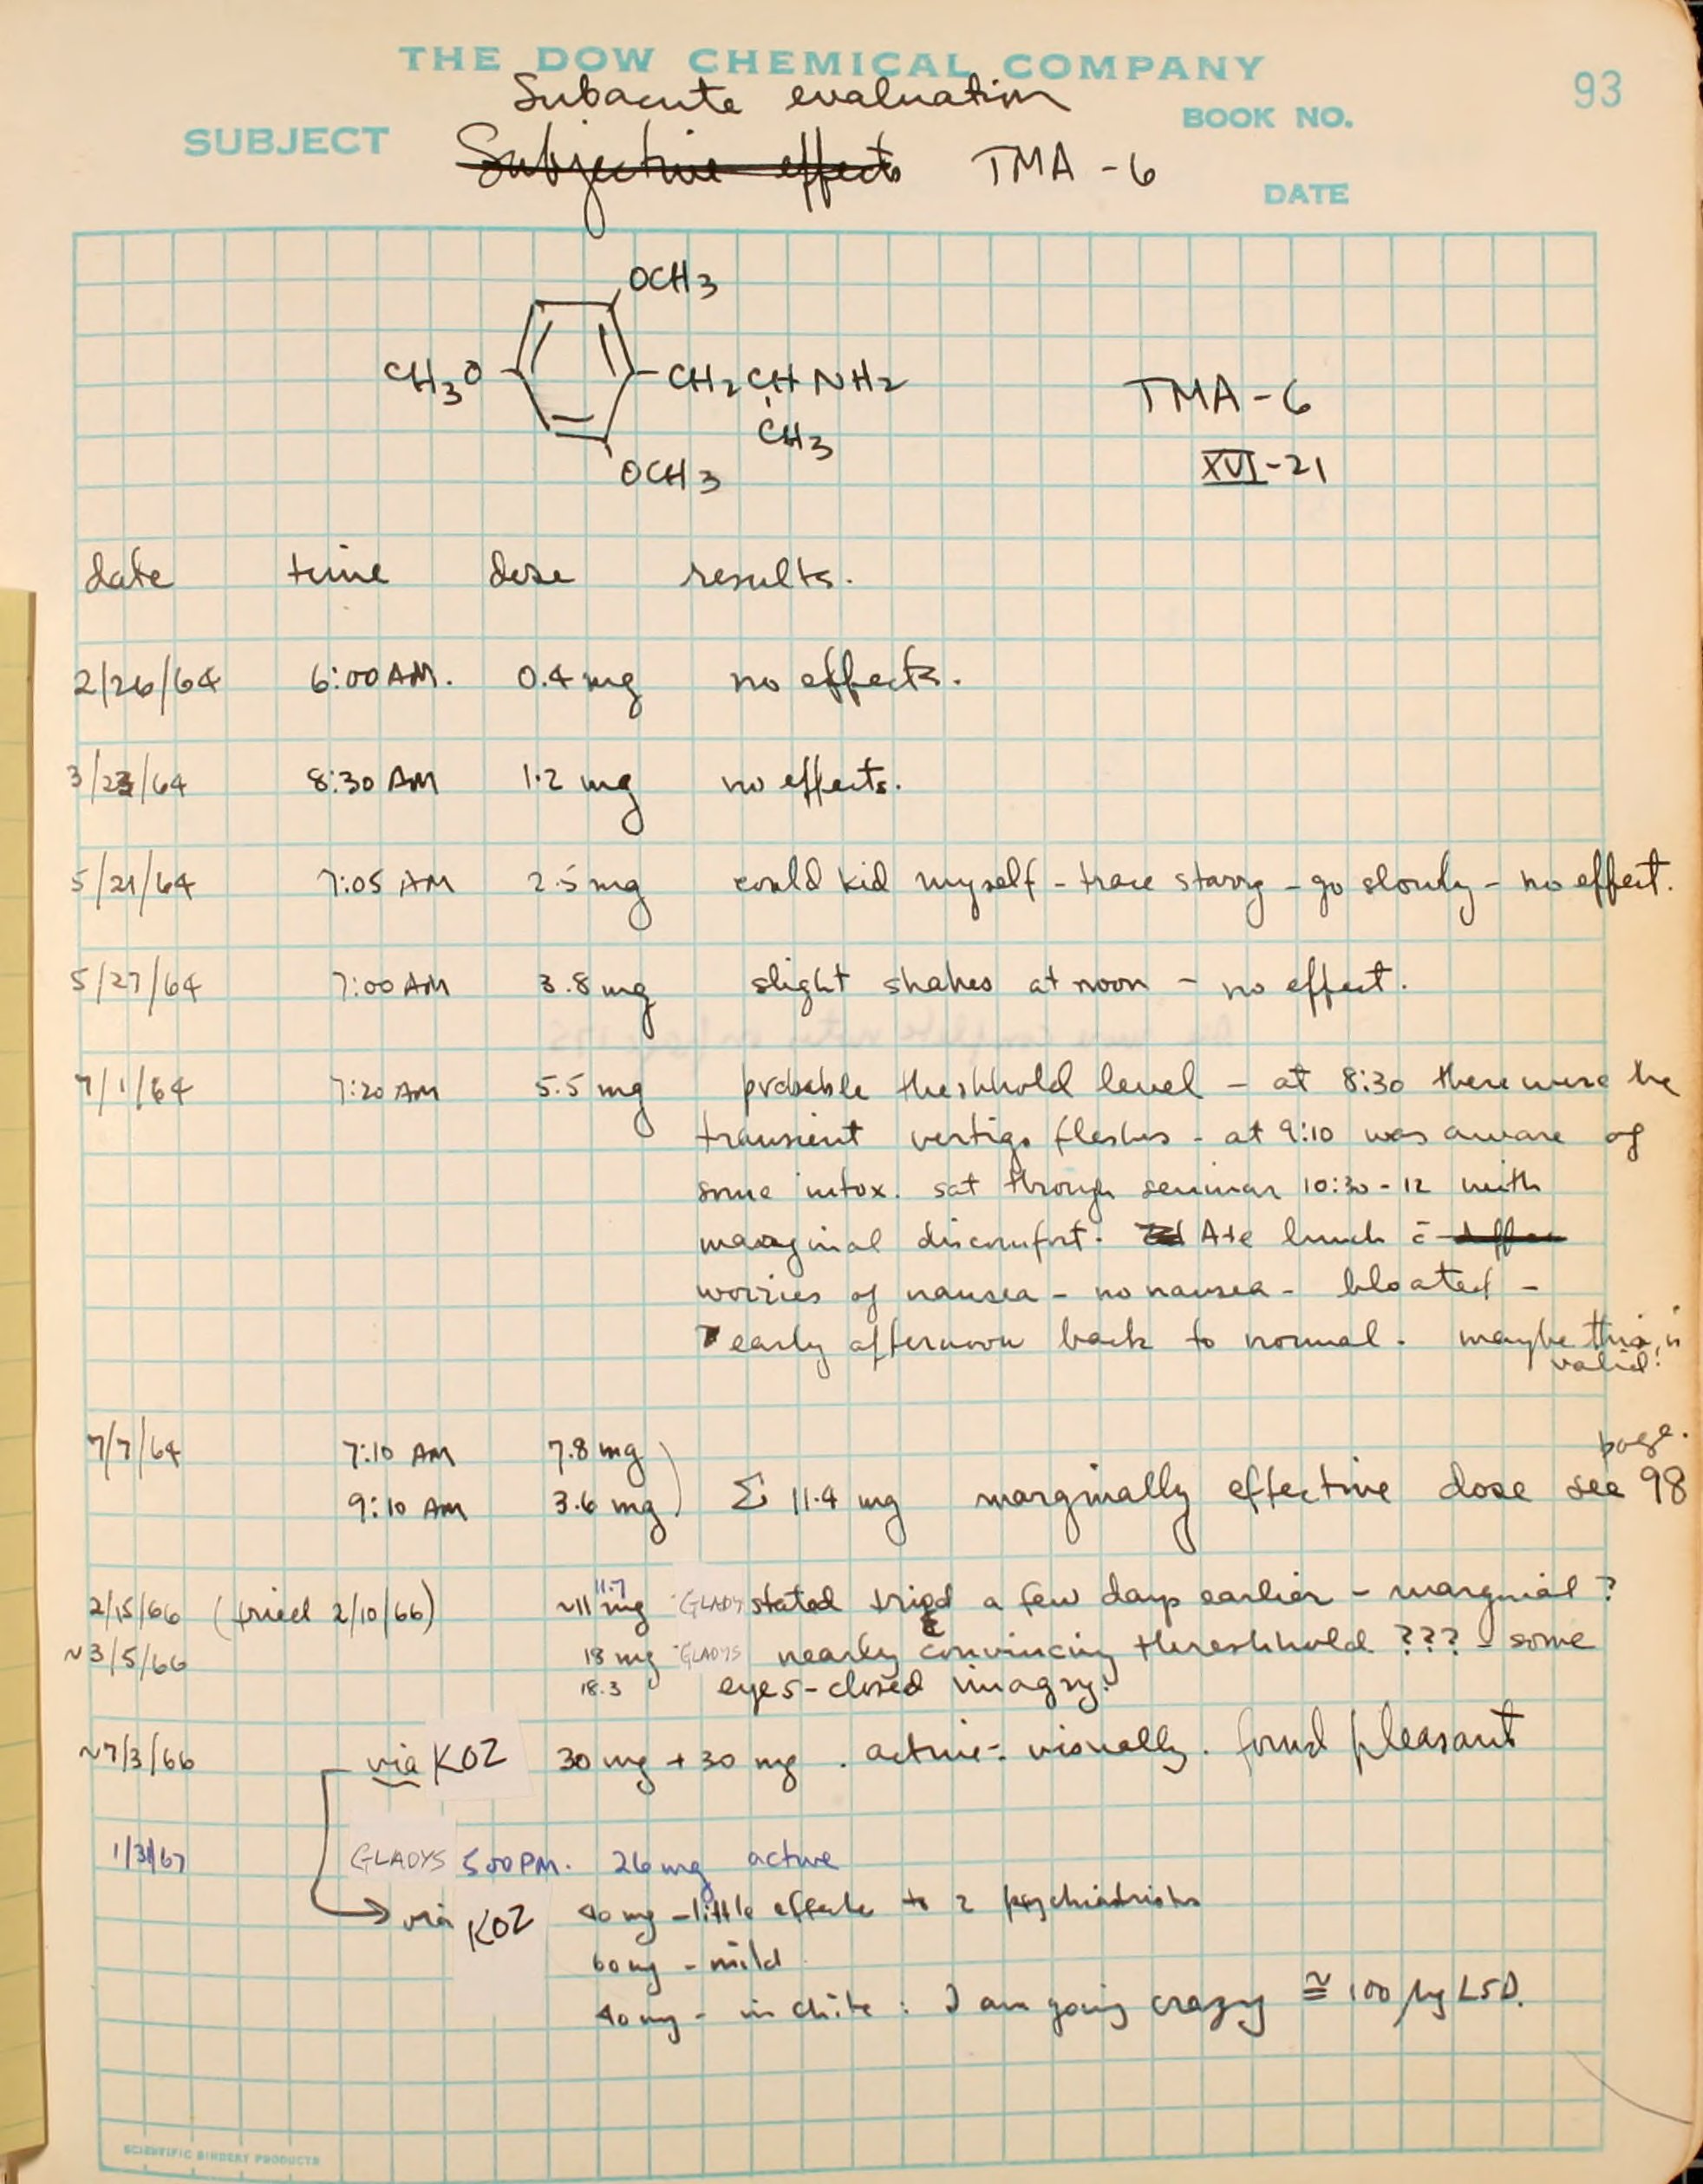 THE DOW CHEMICAL COMPANY
93
Subacute evaluation
BOOK NO.
SUBJECT
Subjective effects TMA-6
DATE
OCH3
CH3O CH2CHNH2
CH3
OCH3
TMA-6
XVI-21
date time dose results.
2/26/64 6:00 AM. 0.4 mg no effects.
3/23/64 8:30 AM 1.2 mg no effects.
5/21/64 7:05 AM 2.5 mg could kid myself - trace starry - go slowly - no effect.
5/27/64 7:00 AM 3.8 mg slight shakes at noon - no effect.
7/1/64 7:20 AM 5.5 mg probable theshhold level - at 8:30 there were the
transient vertigo flashes - at 9:10 was aware of
some intox. sat through seminar 10:30-12 with
marginal discomfort. Ate lunch c̄
worries of nausea - no nausea - bloated -
early afternoon back to normal. maybe this is
valid!
7/7/64 7:10 AM 7.8 mg
page.
9:10 AM 3.6 mg) Σ 11.4 mg marginally effective dose see 98
11.7
2/15/66 (tried 2/10/66) ~11 mg GLADYS stated tried a few days earlier - marginal?
~3/5/66 18 mg GLADYS nearly convincing threshhold ??? - some
18.3 eyes-closed imagry!
~7/3/66 via KOZ 30 mg + 30 mg. active - visually. found pleasant
1/31/67 GLADYS 5:00 PM. 26 mg active
via KOZ 40 mg - little effects to 2 psychiatrists
60 mg - mild
40 mg - in Chile: I am going crazy ≅ 100 μg LSD.
SCIENTIFIC BINDERY PRODUCTS